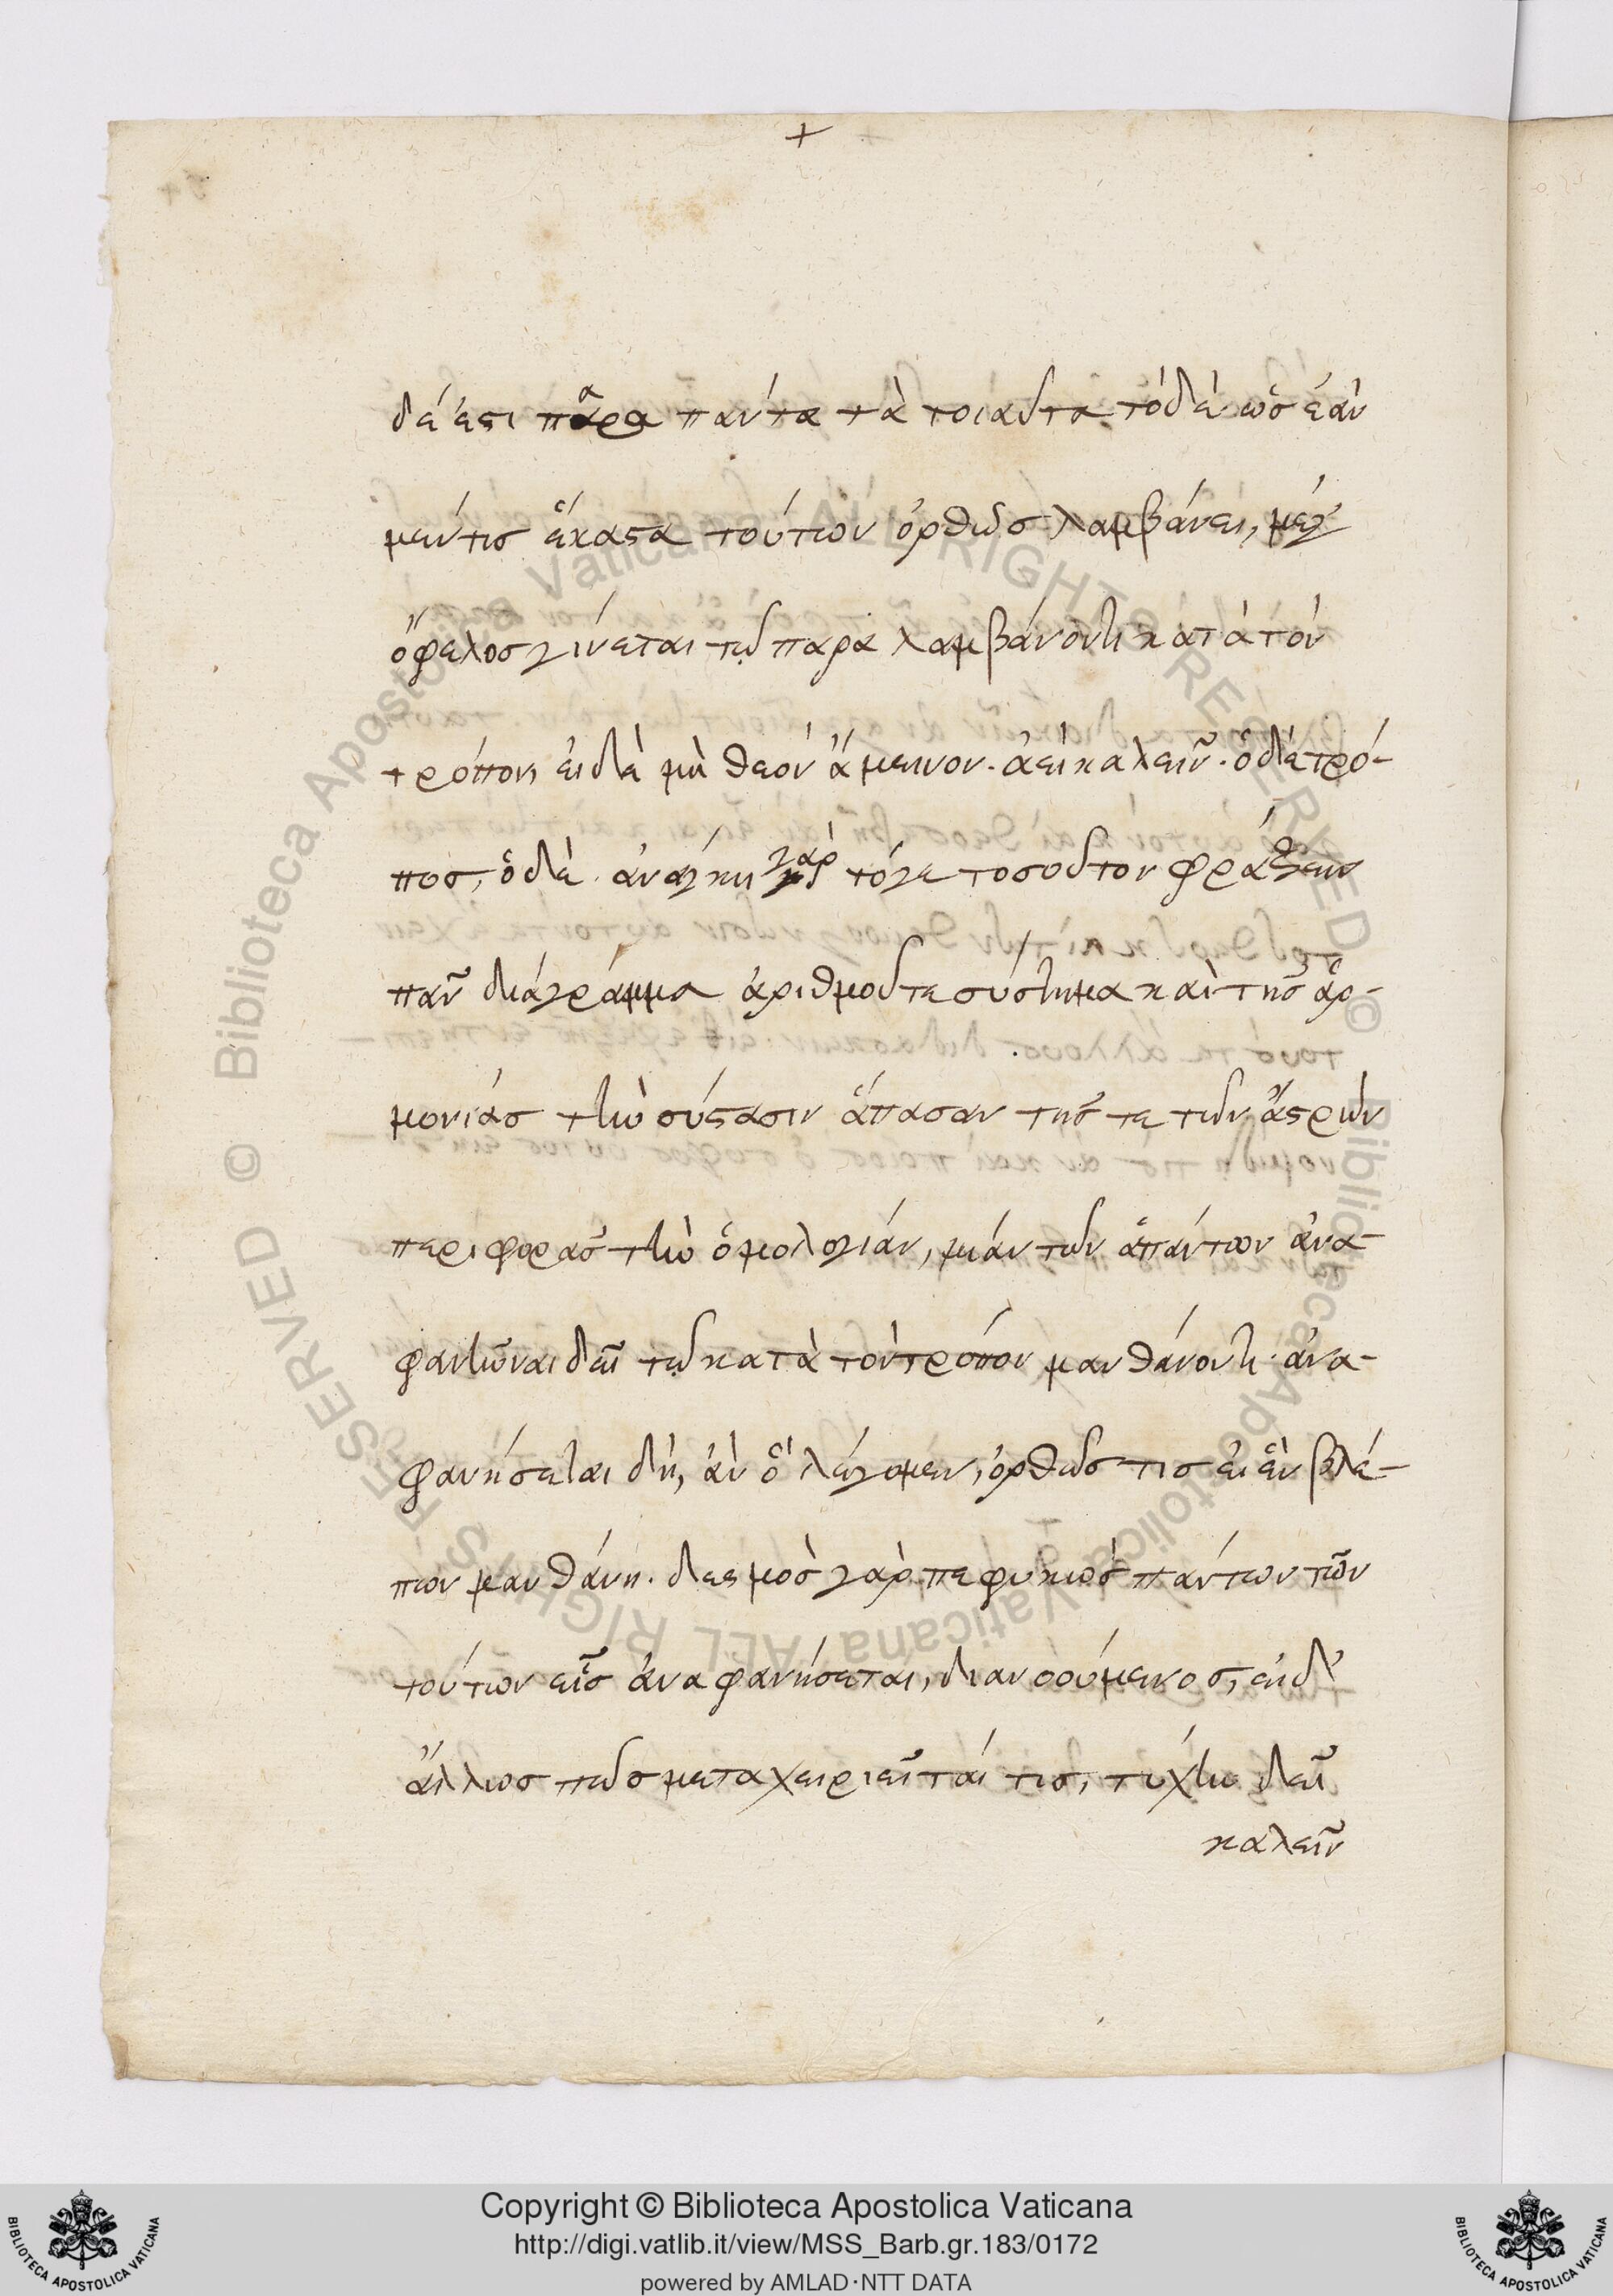 +
δέ ἐστι πᾶρα πάντα τὰ τοιαῦτα τόδε· ὡς ἐὰν
μέν τις ἕκαστα τούτων ὀρθῶς λαμβάνει, μέγ'
ὄφελος γίνεται τῷ παραλαμβάνοντι κατὰ τὸν
τρόπον, εἰ δὲ μὴ θεὸν ἄμεινον ἀεὶ καλεῖν· ὁ δὲ τρό-
πος, ὁ δε· ἀνάγκη γὰρ τόγε τοσοῦτον φράζειν
πᾶν διάγραμμα ἀριθμοῦ τε σύστημα καὶ τῆς ἁρ-
μονίας τὴν σύστασιν ἅπασαν τῆς τε τῶν ἄστρων
περιφορᾶς τὴν ὁμολογίαν, μίαν τῶν ἁπάντων ἀνα-
φανῆναι δεῖ τῷ κατὰ τὸν τρόπον μανθάνοντι· ἀνα-
φανήσεται δὴ, ἂν ὃ λέγομεν, ὀρθῶς τις εἰς ἓν βλέ-
πων μανθάνη. δεσμὸς γὰρ πεφυκὼς πάντων τῶν
τούτων εἷς ἀναφανήσεται, διανοούμενος, εἰ δ'
ἄλλως πῶς μεταχειριεῖταί τις, τύχην δεῖ
καλεῖν
© Biblioteca Apostolica Vaticana ALL RIGHTS RESERVED
© Biblioteca Apostolica Vaticana ALL RIGHTS RESERVED
BIBLIOTECA APOSTOLICA VATICANA
Copyright © Biblioteca Apostolica Vaticana
http://digi.vatlib.it/view/MSS_Barb.gr.183/0172
powered by AMLAD·NTT DATA
BIBLIOTECA APOSTOLICA VATICANA